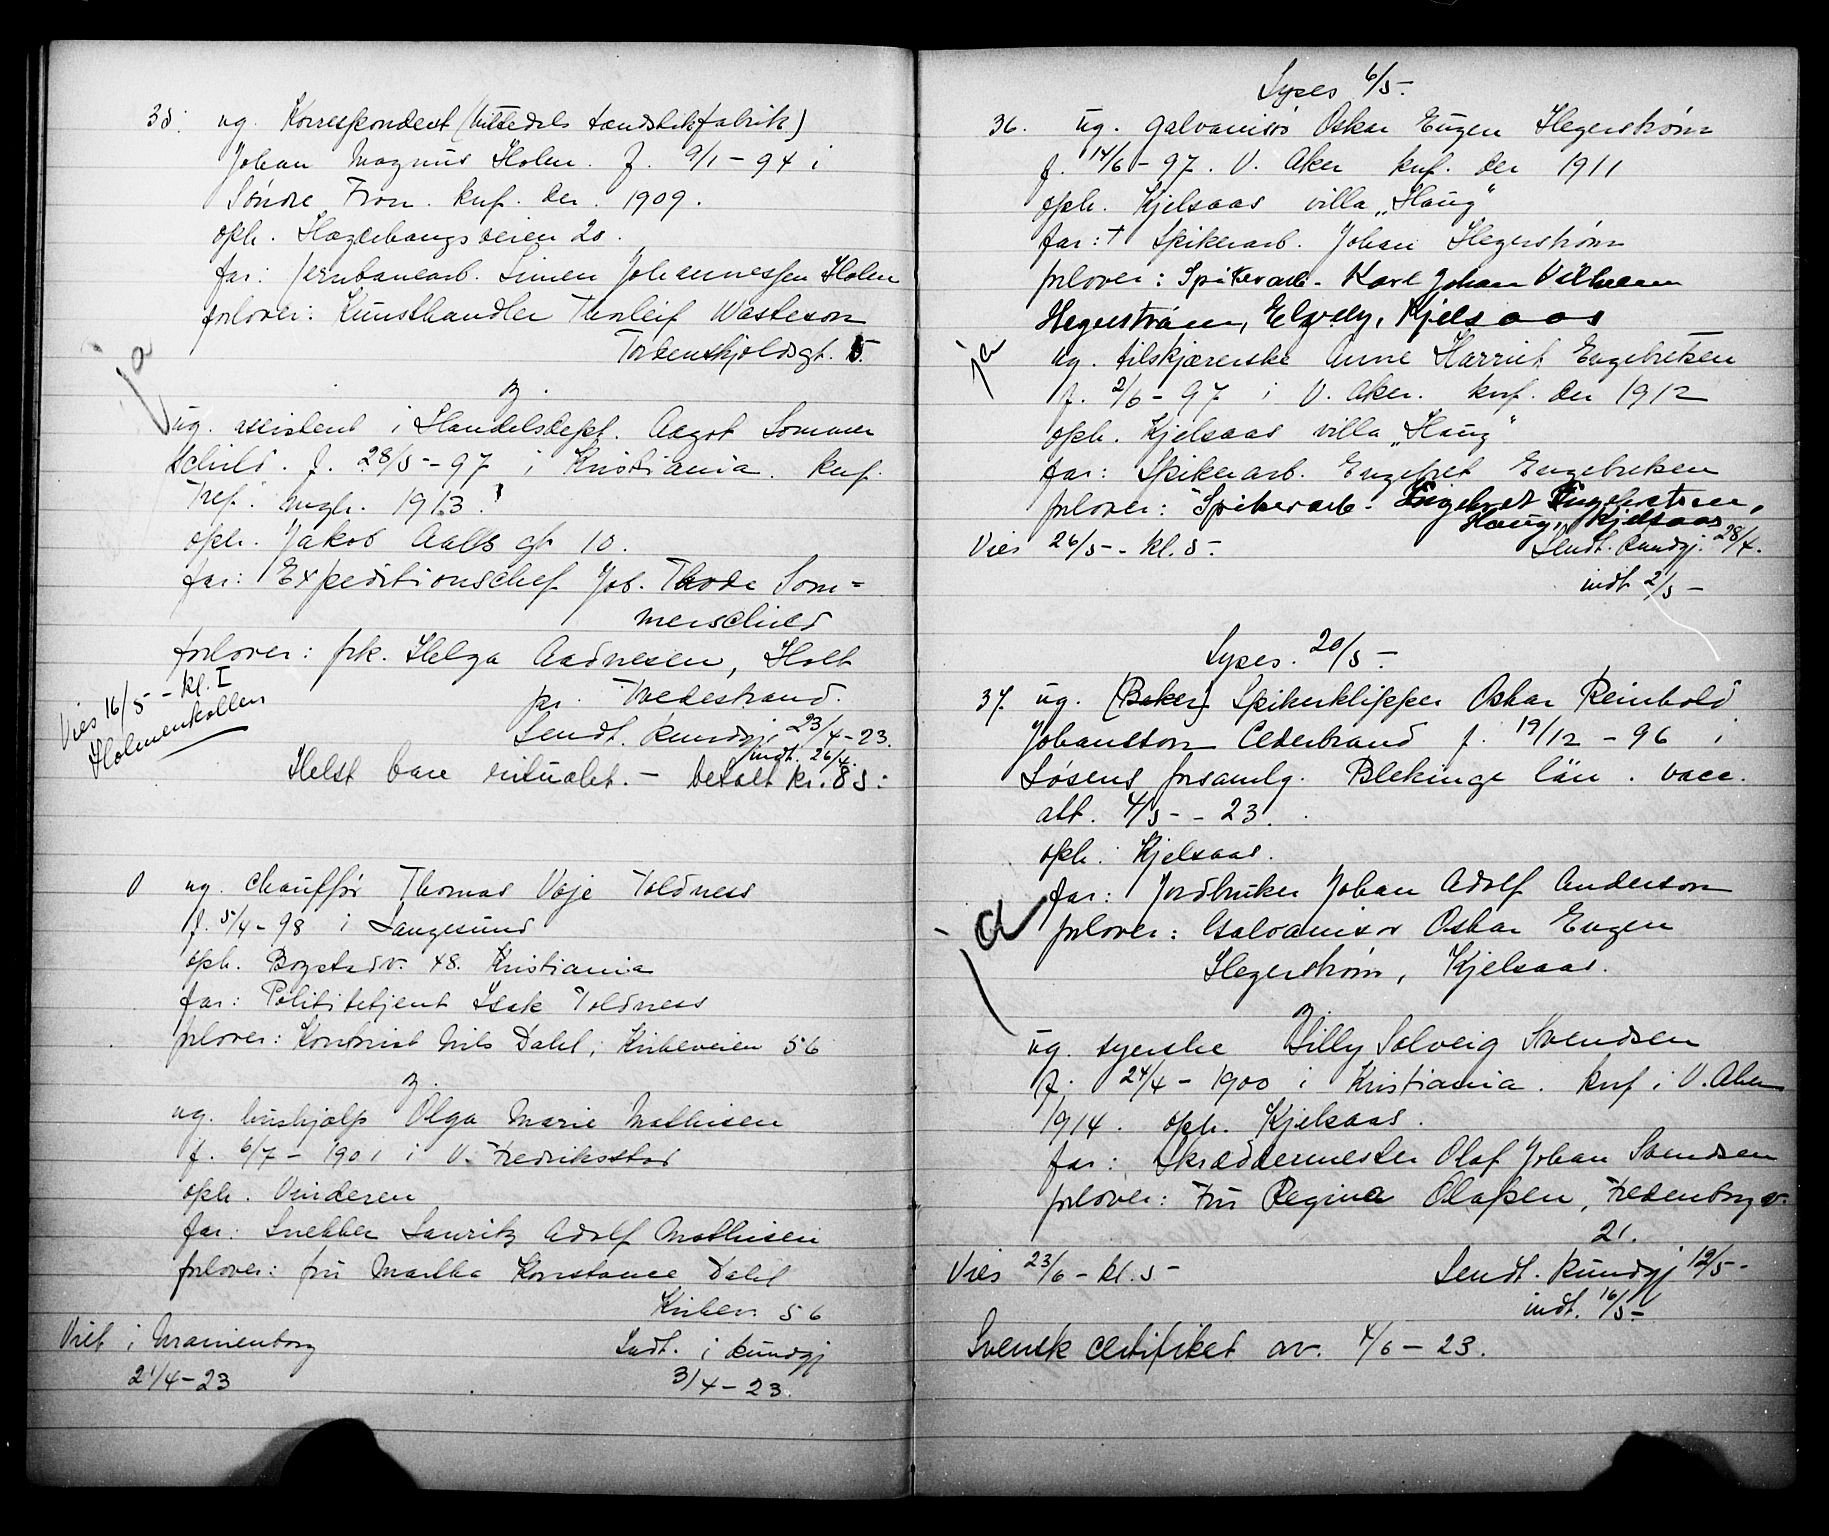 35. ug. Korrespondent (Nittedals tændstikfabrik)
Johan Magnus Holen. f. 9/1 - 94 i
Søndre Fron. knf. der. 1909.
oph. Hagebyveien 20.
far: jernbanearb. Simen Johannessen Holen
forlover: Kunsthandler Thorleif Wasteson
Tordenskjoldsgt. 5.
ja
og.
ug. assistent i Handelsdept. Aagot Sommer
schild. f. 28/5 - 97 i Kristiania. knf.
Tref. mgh. 1913.
oph. Jakob Aalls gt 10.
far: Expeditionschef Job. Thode Som=
merschild
forlover: frk. Helga Aadnesen, Holt
pr. Tvedestrand.
Vies 16/5 - kl. 1
Holmenkollen
Sendt. kundgj. 23/4 - 23.
indt. 26/4.
Helst bare ritualet. - betalt kr. 85:
0 ug. chauffør Thomas Voje Toldness
f. 5/4 - 98 i Langesund
oph. Bogstadv. 48. Kristiania
far: Politibetjent Isak Toldness
forlover: Kontorist Nils Dahl, Kirkeveien 56
og.
ug. hushjælp Olga Marie Mathisen
f. 6/7 - 1901 i V. Fredrikstad
oph. Vinderen
far: Snekker Lauritz Adolf Mathisen
forlover: fru Martha Konstance Dahl
Kirkev. 56
Viet i Uranienborg
21/4 - 23
Sendt. i kundgj
3/4 - 23.
Lyses 6/5 -
36. ug. galvanisør Oskar Eugen Hegerstrøm
f. 14/6 - 97. V. Aker knf. der 1911
oph. Kjelsaas villa „Haug"
far: + Spikerarb. Johan Hegerstrøm
forlover: Spikerarb. Karl Johan Vilhelm
Hegerstrøm, Elvely, Kjelsaas
ja
ug. tilskjærerske Anne Harriet Engebretsen
f. 2/6 - 97 i V. Aker. knf. der 1912
oph. Kjelsaas villa „Haug"
far: Spikerarb. Engebret Engebretsen
forlover: Spikerarb. Engebret Engebretsen,
Haug, Kjelsaas
Vies 26/5 - kl. 5.
Sendt. kundgj. 28/4.
indt 2/5 -
Lyses. 20/5 -
37. ug. (Baker) Spikerklipper Oskar Reinhold
Johansson Cederbrand f. 19/12 - 96 i
Løsens forsamlg. Blekinge län. vacc.
att. 4/5 - - 23.
oph. Kjelsaas.
far: Jordbruker Johan Adolf Anderson
ja
forlover: Galvanisør Oskar Eugen
Hegerstrøm, Kjelsaas.
og.
ug. syerske Lilly Solveig Svendsen
f. 24/4 - 1900 i Kristiania. knf i V. Aker
1914. oph. Kjelsaas.
far: Skræddermester Olaf Johan Svendsen
forlover: Fru Regina Olafsen, Fredensborgv.
21.
Vies 23/6 - kl. 5 -
Sendt. kundgj 12/5 -
indt. 16/5 -
Svensk certifiket av. 4/6 - 23.